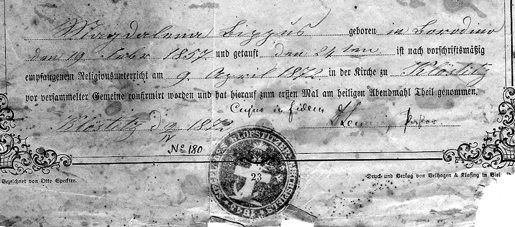 Magdalena Lippus geboren in Borodino
den 19 Febr 1857 und getauft den 24ten ist nach vorschriftsmäßig
empfangenem Religionsunterricht am 9. April 1872 in der Kirche zu Klöstitz
vor versammelter Gemeine confirmirt worden und hat hierauf zum ersten Mal am heiligen Abendmahl Theil genommen.
Cujus in fidem
Klöstitz d 1872 Pastor
No 180
23
Gezeichnet von Otto Speckter.
Druck und Verlag von Velhagen & Klasing in Biel